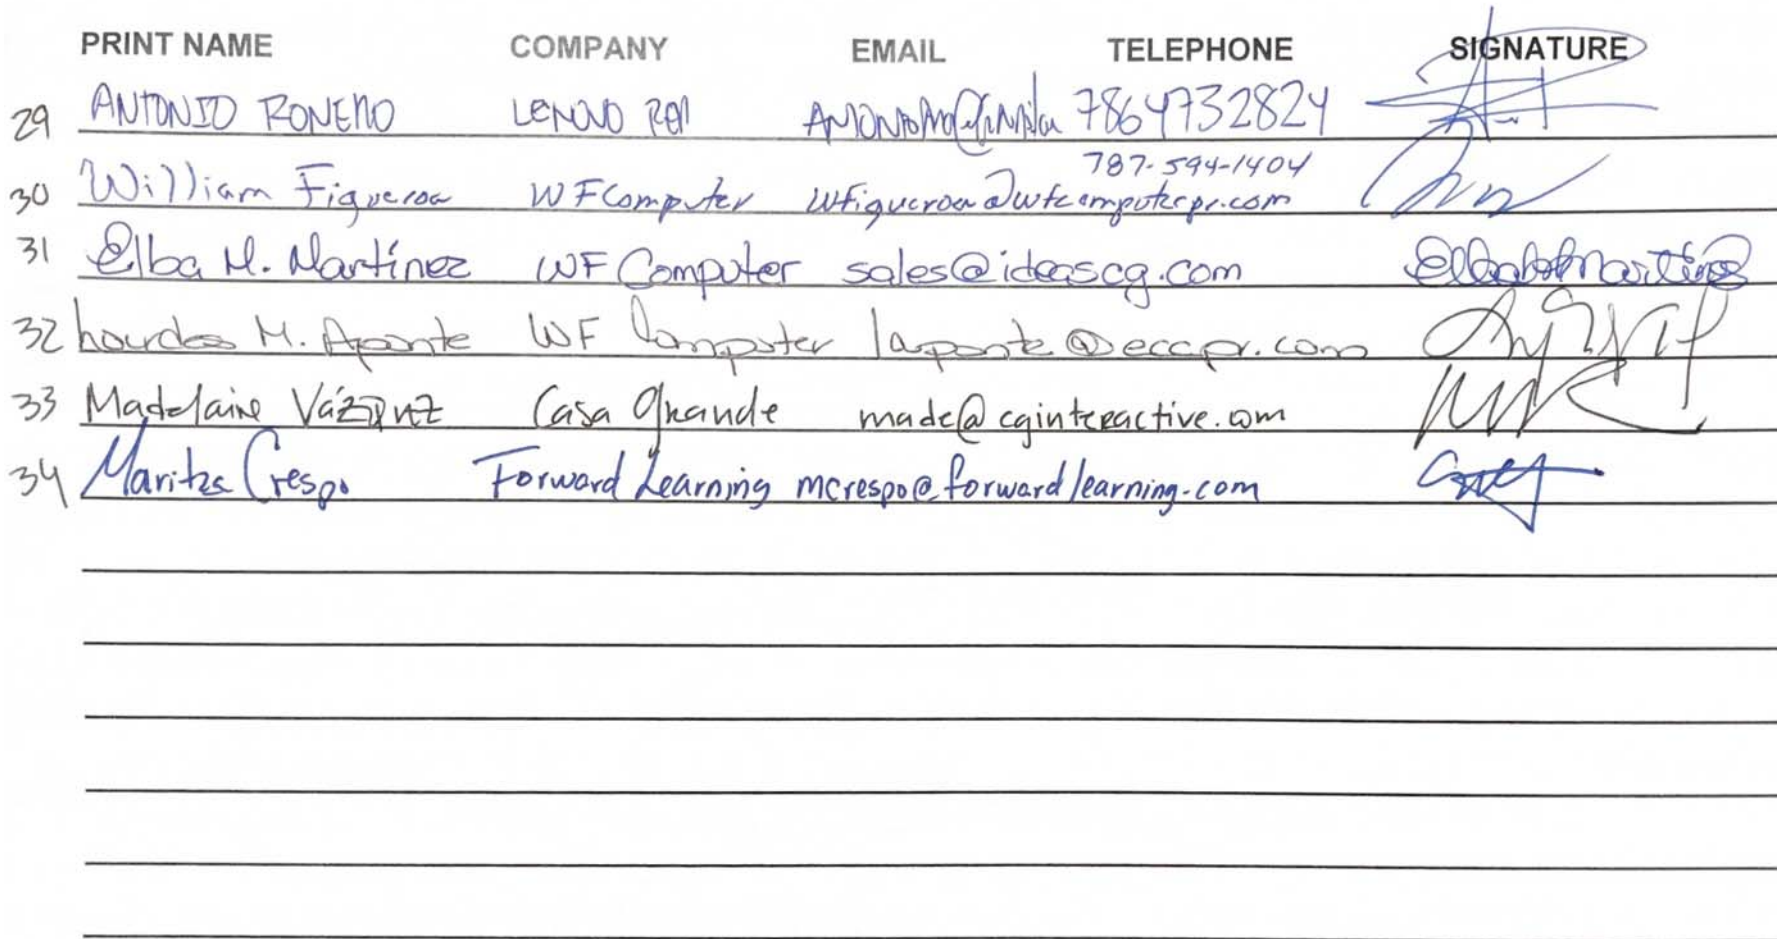 PRINT NAME COMPANY EMAIL TELEPHONE SIGNATURE
29 ANTONIO ROMERO LENOVO 7864732824
787-594-1404
30 William Figueroa WFComputer wfigueroa@wfcomputerpr.com
31 Elba M. Martínez WF Computer sales@ideascg.com
32 Lourdes M. Aponte WF Computer laponte@eccpr.com
33 Madelaine Vázquez Casa Grande made@cginteractive.com
34 Maritza Crespo Forward Learning mcrespo@forwardlearning.com